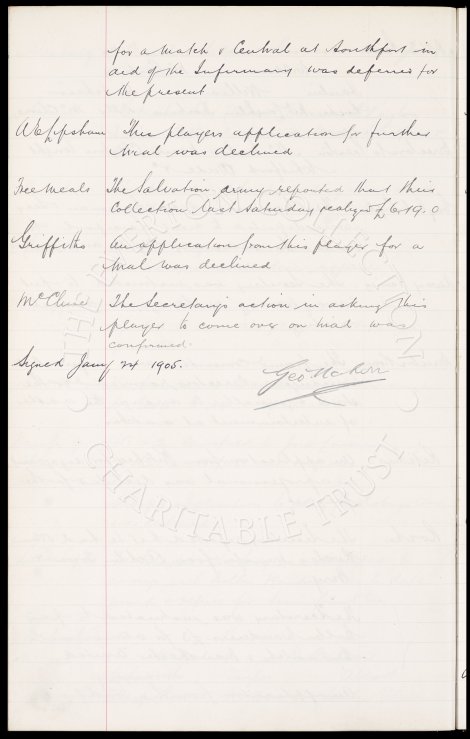 for a match v Central at Southport in
aid of the Infirmary was deferred for
the present
This players application for further
trial was declined
Free Meals The Salvation army reported that this
Collection last Saturday realized £6.19.0
Griffiths An application from this player for a
trial was declined
McClure The Secretary's action in asking this
player to come over on trial was
confirmed.
Signed Jany 24 1905.
Geo Mahon
THE EVERTON COLLECTION
CHARITABLE TRUST